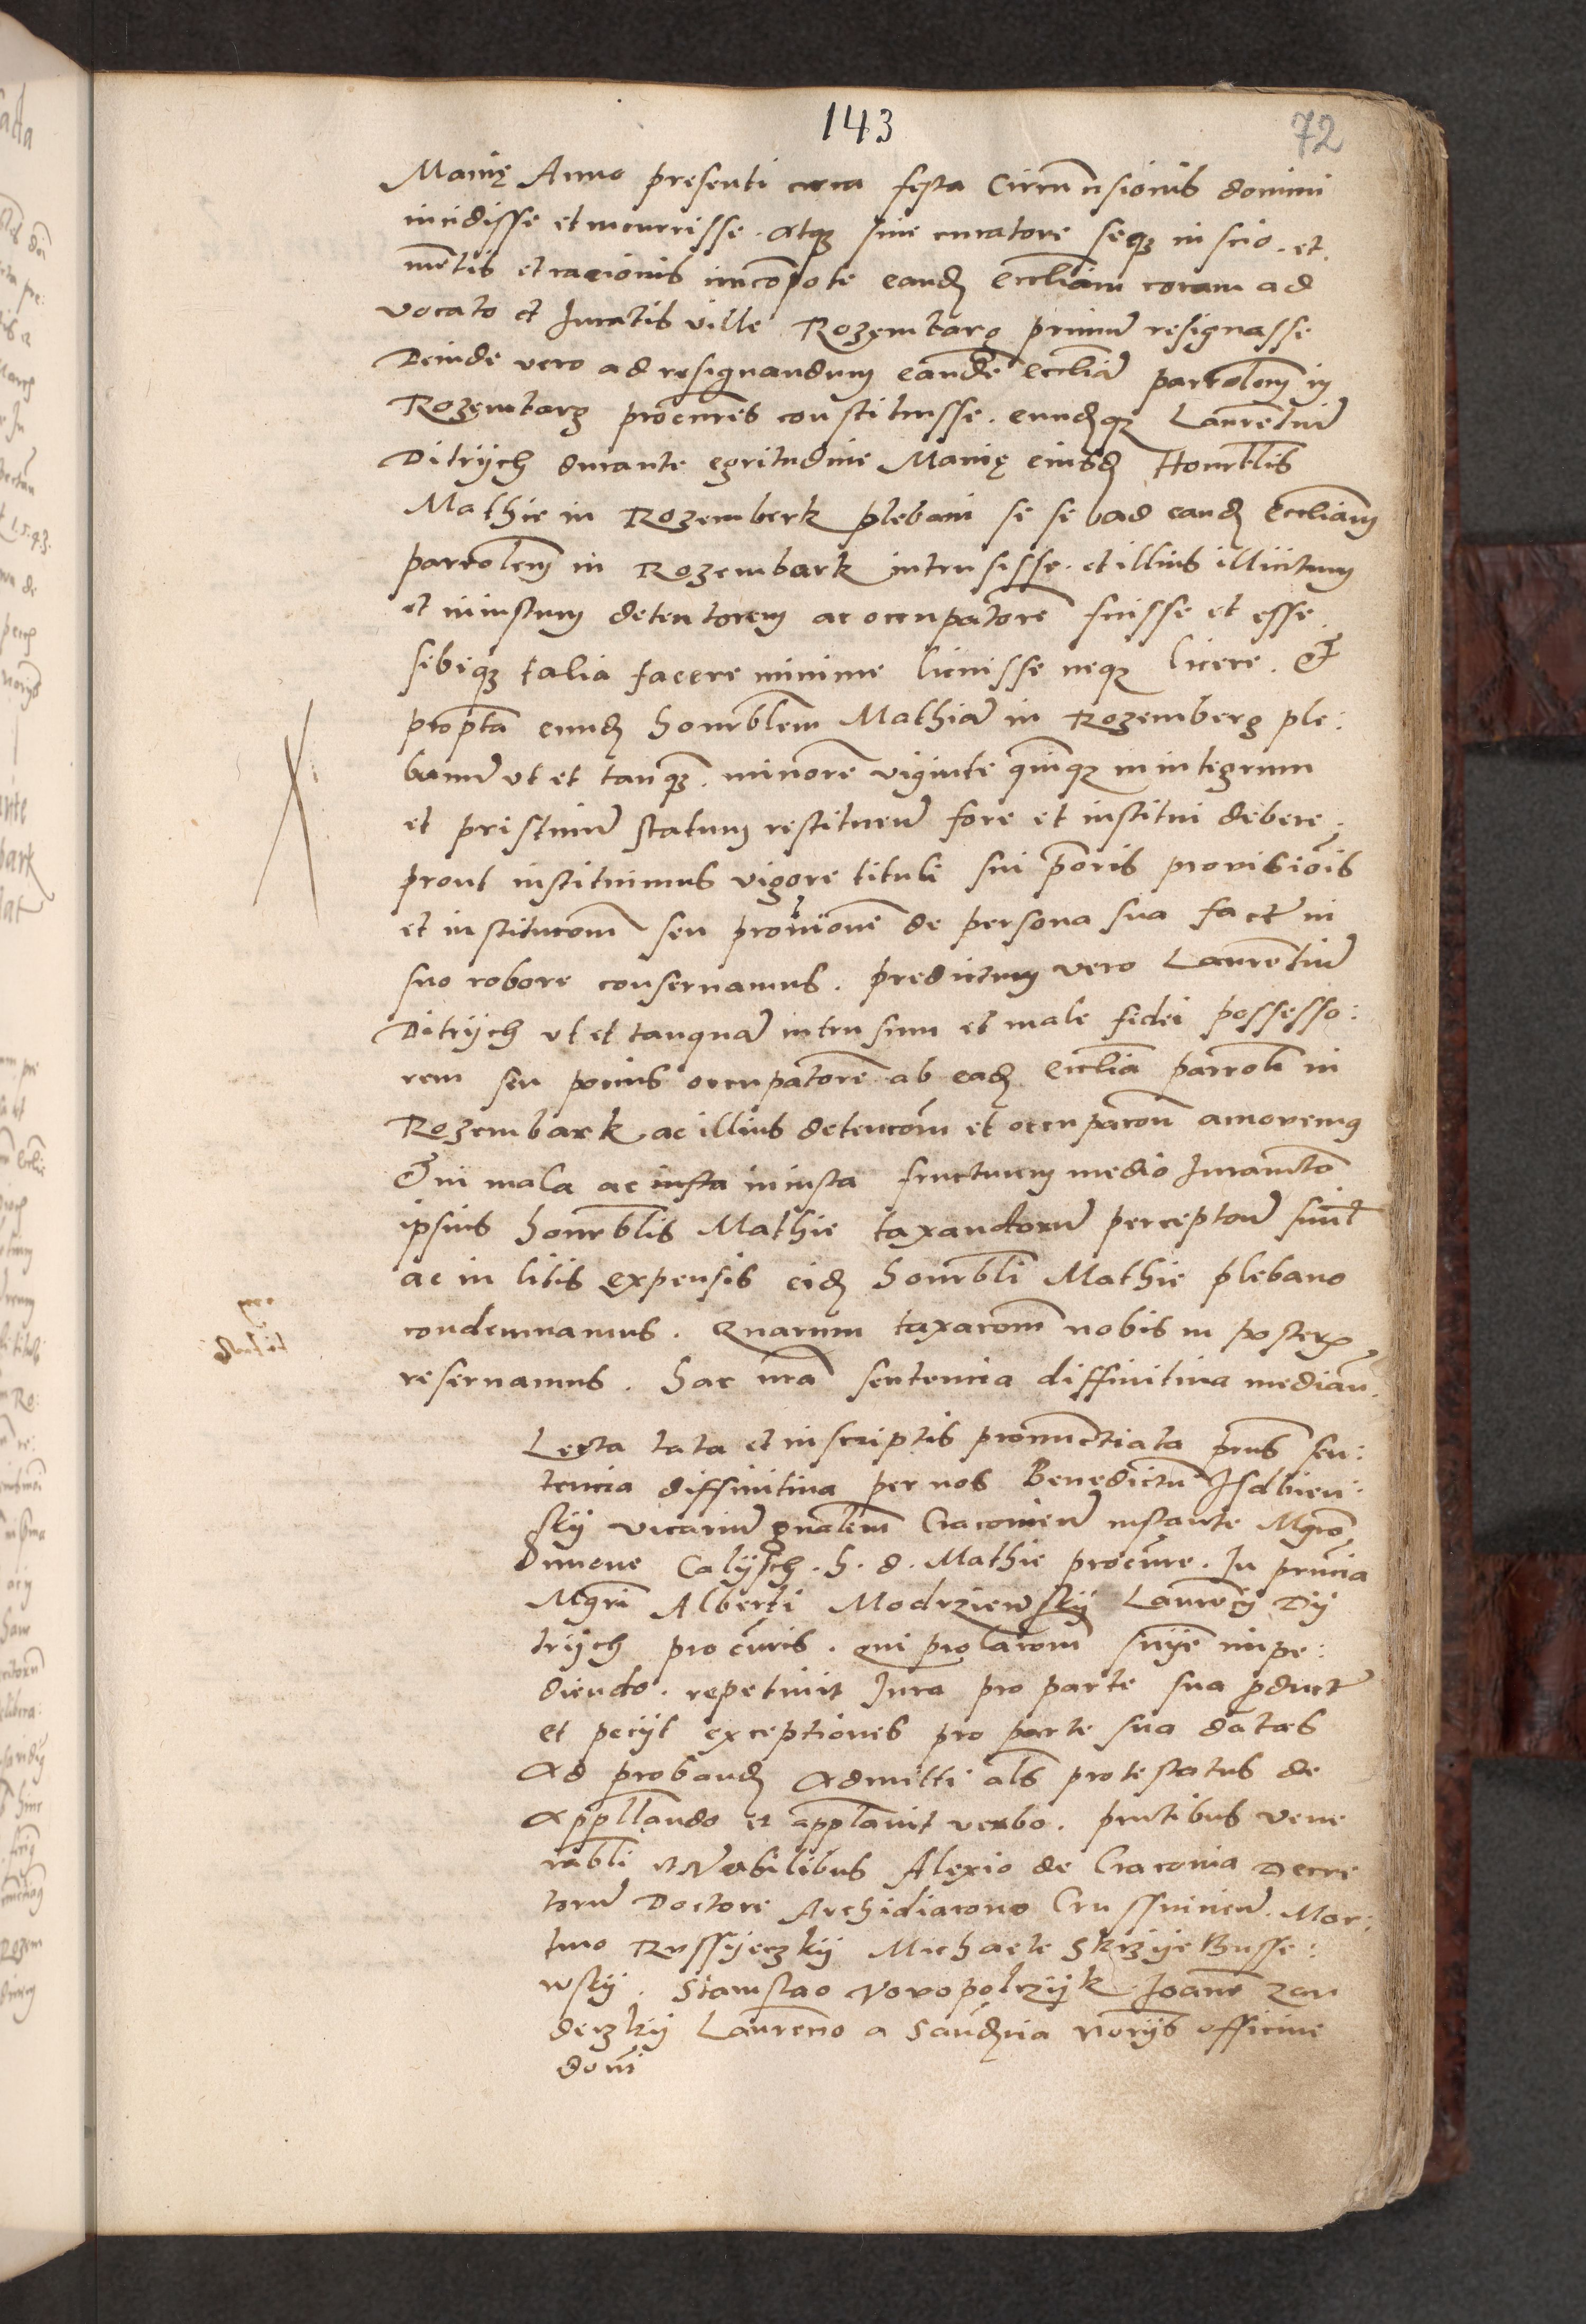 143
72
Manię Anno presenti circa festa Circumcisionis domini
incidisse et incurrisse . atqз sine curatore seqз inscio . et
mentis et racionis imcompote eandз ecclliam coram ad
vocato et Juratis ville Rozembarg primu resignasse
Deinde vero ad resignandum eande eccliā parrolem in
Rozembarg procures constituisse . eundзqз Laurentiū
Ditrÿch durante egritudine Manię eiusdз Honrblis
Mathie in Rozemberk plebani se se ad eandз eccliam
parrolem in Rozembark intrusisse . et illius illicitum
et iniustum detentorem ac occupatore fuisse et esse .
sibiqз talia facere minime licuisse neqз licere . Et
propta eundз honrblem Mathiā in Rozemberg ple:
banū ut et tanqз . minore viginte quinqз in integrum
et pristinū statum restituen fore et institui debere .
prout instituimus vigore tituli sui prioris provisiois
et institucom seu provisione de persona sua fact in
suo robore conservamus . predictum vero Laurentiū
Ditrÿch ut et tanquā intrusum et male fidei possesso:
rem seu pocius occupatore ab eadз ecclia parroli in
Rozembark ac illius detencom et occupacom amovemus
Et in mala ac iniusta fructuum medio Juramto
ipsius honrblis Mathie taxandorū perceptoū
ac in litis expensis eidз honrbli Mathie plebano
condemnamus . Quarum taxacom nobis in poster
reservamus . hac nra sentencia diffinitiva median .
Lecta lata et in scriptis pronunctiata prns sen:
tencia diffinitiva per nos Benedictu Isdbien:
skÿ vicariū gnalem Cracovien instante Mgro
Calÿsch . h . d . Mathie procure . In prncia
Mgri Alberti Modrziewskÿ Laurencÿ Dÿ
trÿch procuris . qui prolacom snÿe impe:
diendo . repetivit Jura pro parte sua pduct
et pecÿt exceptiones pro parte sua datas
Ad probandз Admitti als protestatus de
Appllando et applavit verbo . prntibus vene
rabli et Nobilibus Alexio de Cracovia Decre
torū Doctore Archidiacono Crussvicien . Mar:
tino Russÿeczkÿ Michaele SkrzÿeBusse:
wskÿ . Stanislao Novopolczÿk Joane Zan
deczkÿ Laurencio a Sandзcia norÿs officine
domi